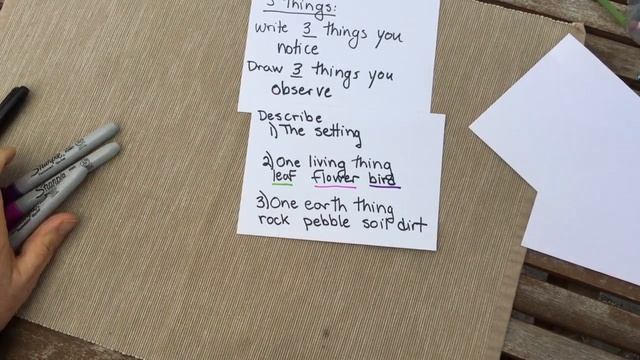 3 Things:
Write 3 things you
notice
Draw 3 things you
observe
Describe
1) The setting
2) One living thing
leaf flower bird
3) One earth thing
rock pebble soil dirt
Sharpie
Sharpie